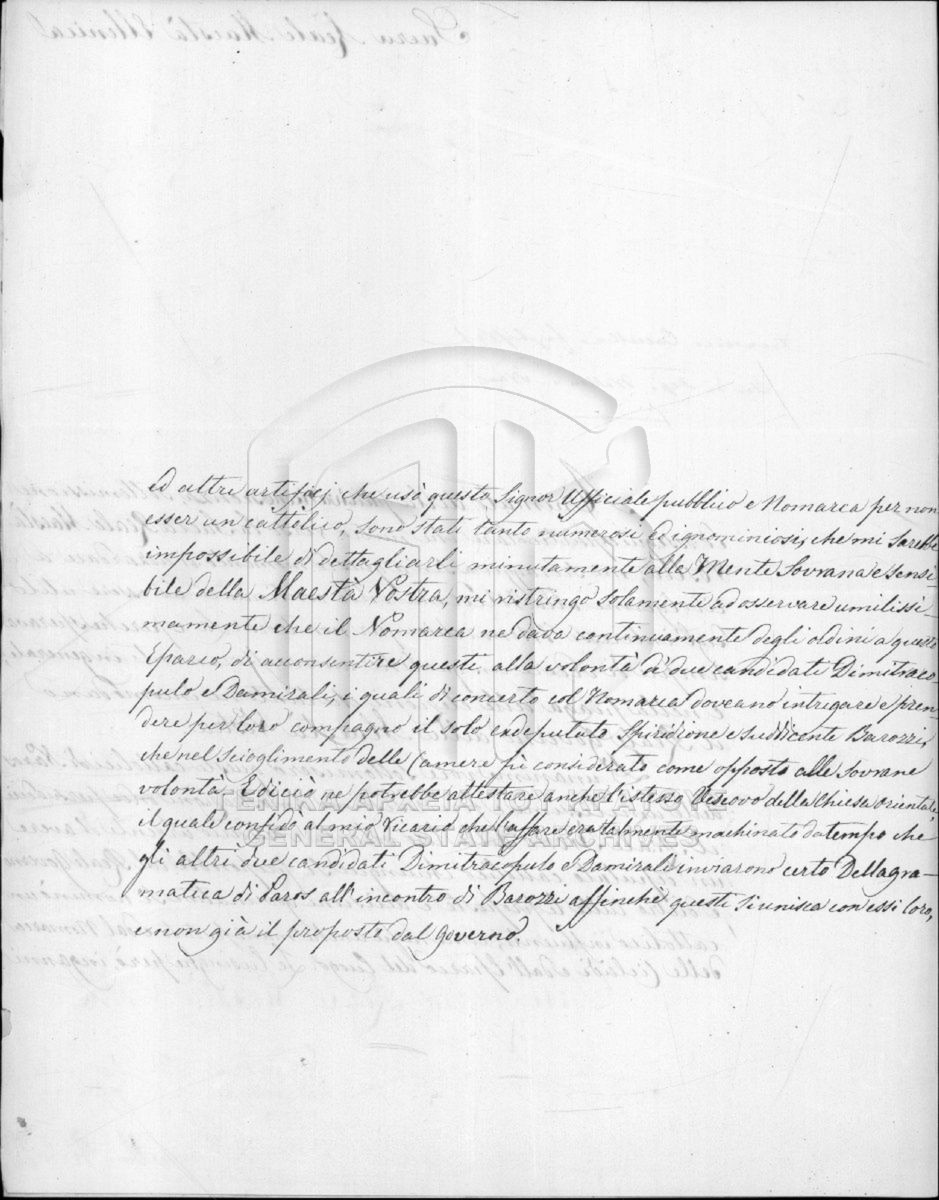 ed altri artificj che usò questo Signor Ufficiale pubblico e Nomarca per non
esser un cattolico, sono stati tanto numerosi ed ignominiosi, che mi sarebbe
impossibile di dettagliarli minutamente alla Mente Sovrana e sensi
bile della Maestà Vostra, mi ristringo solamente ad osservare umilissi-
mamente che il Nomarca ne dava continuamente degli oldini a questo
Eparco, di acconsentire questi alla volontà a' due candidati Dimitraco-
pulo e Damirali, i quali di concerto col Nomarca doveano intrigare e pren-
dere per loro compagno il solo exdeputato Spiridione e sudicente Barozzi,
che nel scioglimento delle Camere fù considerato come opposto alle sovrane
volontà. E di ciò ne potrebbe attestare anche l'istesso Vescovo della Chiesa orientale,
il quale confidò al mio Vicario che l'affare era talmente machinato da tempo che
gli altri due candidati Dimitracopulo e Damirali inviarono certo Dellagra-
matica di Paros all'incontro di Barozzi affinchè questi si unisca con essi loro,
e non già il proposto dal governo.
ΓΕΝΙΚΑ ΑΡΧΕΙΑ ΤΟΥ ΚΡΑΤΟΥΣ
GENERAL STATE ARCHIVES